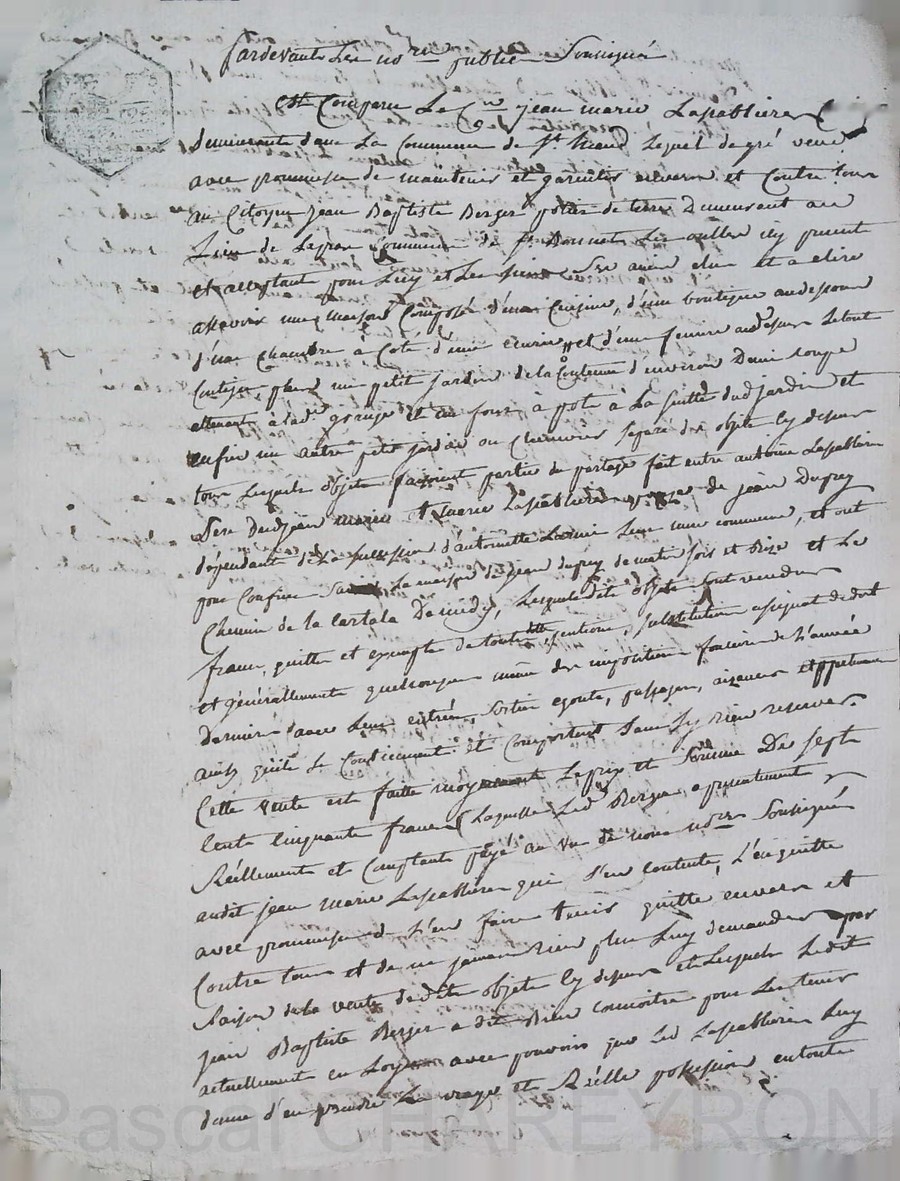 Pardevant Les no.re public Soussigné
Est Comparu Le C.en jean marie Lapabliere
demeurant dans La Commune de St heand Lequel de gré vend
avec promesse de maintenir et garentir envers et Contre tous
au Citoyen jean Baptiste Berger potier de terre Demeurant au
Lieu de Commune de St Bonnet Les oulles icy present
et acceptant pour Luy et Les siens Ses amis elus et a elire
assavoir une maison Composée d'une Cuisine, d'une boutique audessous
d'une chambre à Coté d'une ecurie et d'une feniere audessus Le tout
Contigu, plus un petit jardin de la Contenue d'environ Demi coupe
attenant à lad. grange et un four à pot à La suitte dud jardin et
enfin un autre petit jardin ou Chenevier separé des objets Cy dessus
tous Lesquels objets faisoient partie du partage fait entre antoine Lapabliere
Pere dud jean marie et marie Lapabliere epouse de jean Dupuy
dépendant de La succession d'antoinette Leur mere commune, et ont
pour Confins La maison de jean dupuy de matin soir et Bize et Le
Chemin de la Cartala De midy, Lesquels Dits objets sont vendus
francs, quittes et exempts de toutes pentions, substitution assignat de dot
et généralement quelconque même des imposition fonciere de L'année
derniere avec Leurs entrées, sorties egouts, passages, aisances et appartenances
ainsy qu'ils se Contiennent et Comportent Sans s'y rien reserver.
Cette vente est faitte moyennant Le prix et Somme De Sept
Cents Cinquante francs Laquelle Led Berger a presentement
Réellement et Comptant payé au vu de nous no.re Soussigné
audit jean marie Lapabliere qui s'en contente, L'en quitte
avec promesse de L'en faire tenir quitte envers et
Contre tous et de ne jamais rien plus Luy demander par
Raison de la vente desdits objets Cy dessus et Lesquels Ledit
jean Baptiste Berger a dit Bien connoitre pour Les tenir
actuellement en Loyer avec pouvoirs que Led Lapabliere Luy
donne d'en prendre La vraye et Réelle possession en toute
Pascal CHAREYRON